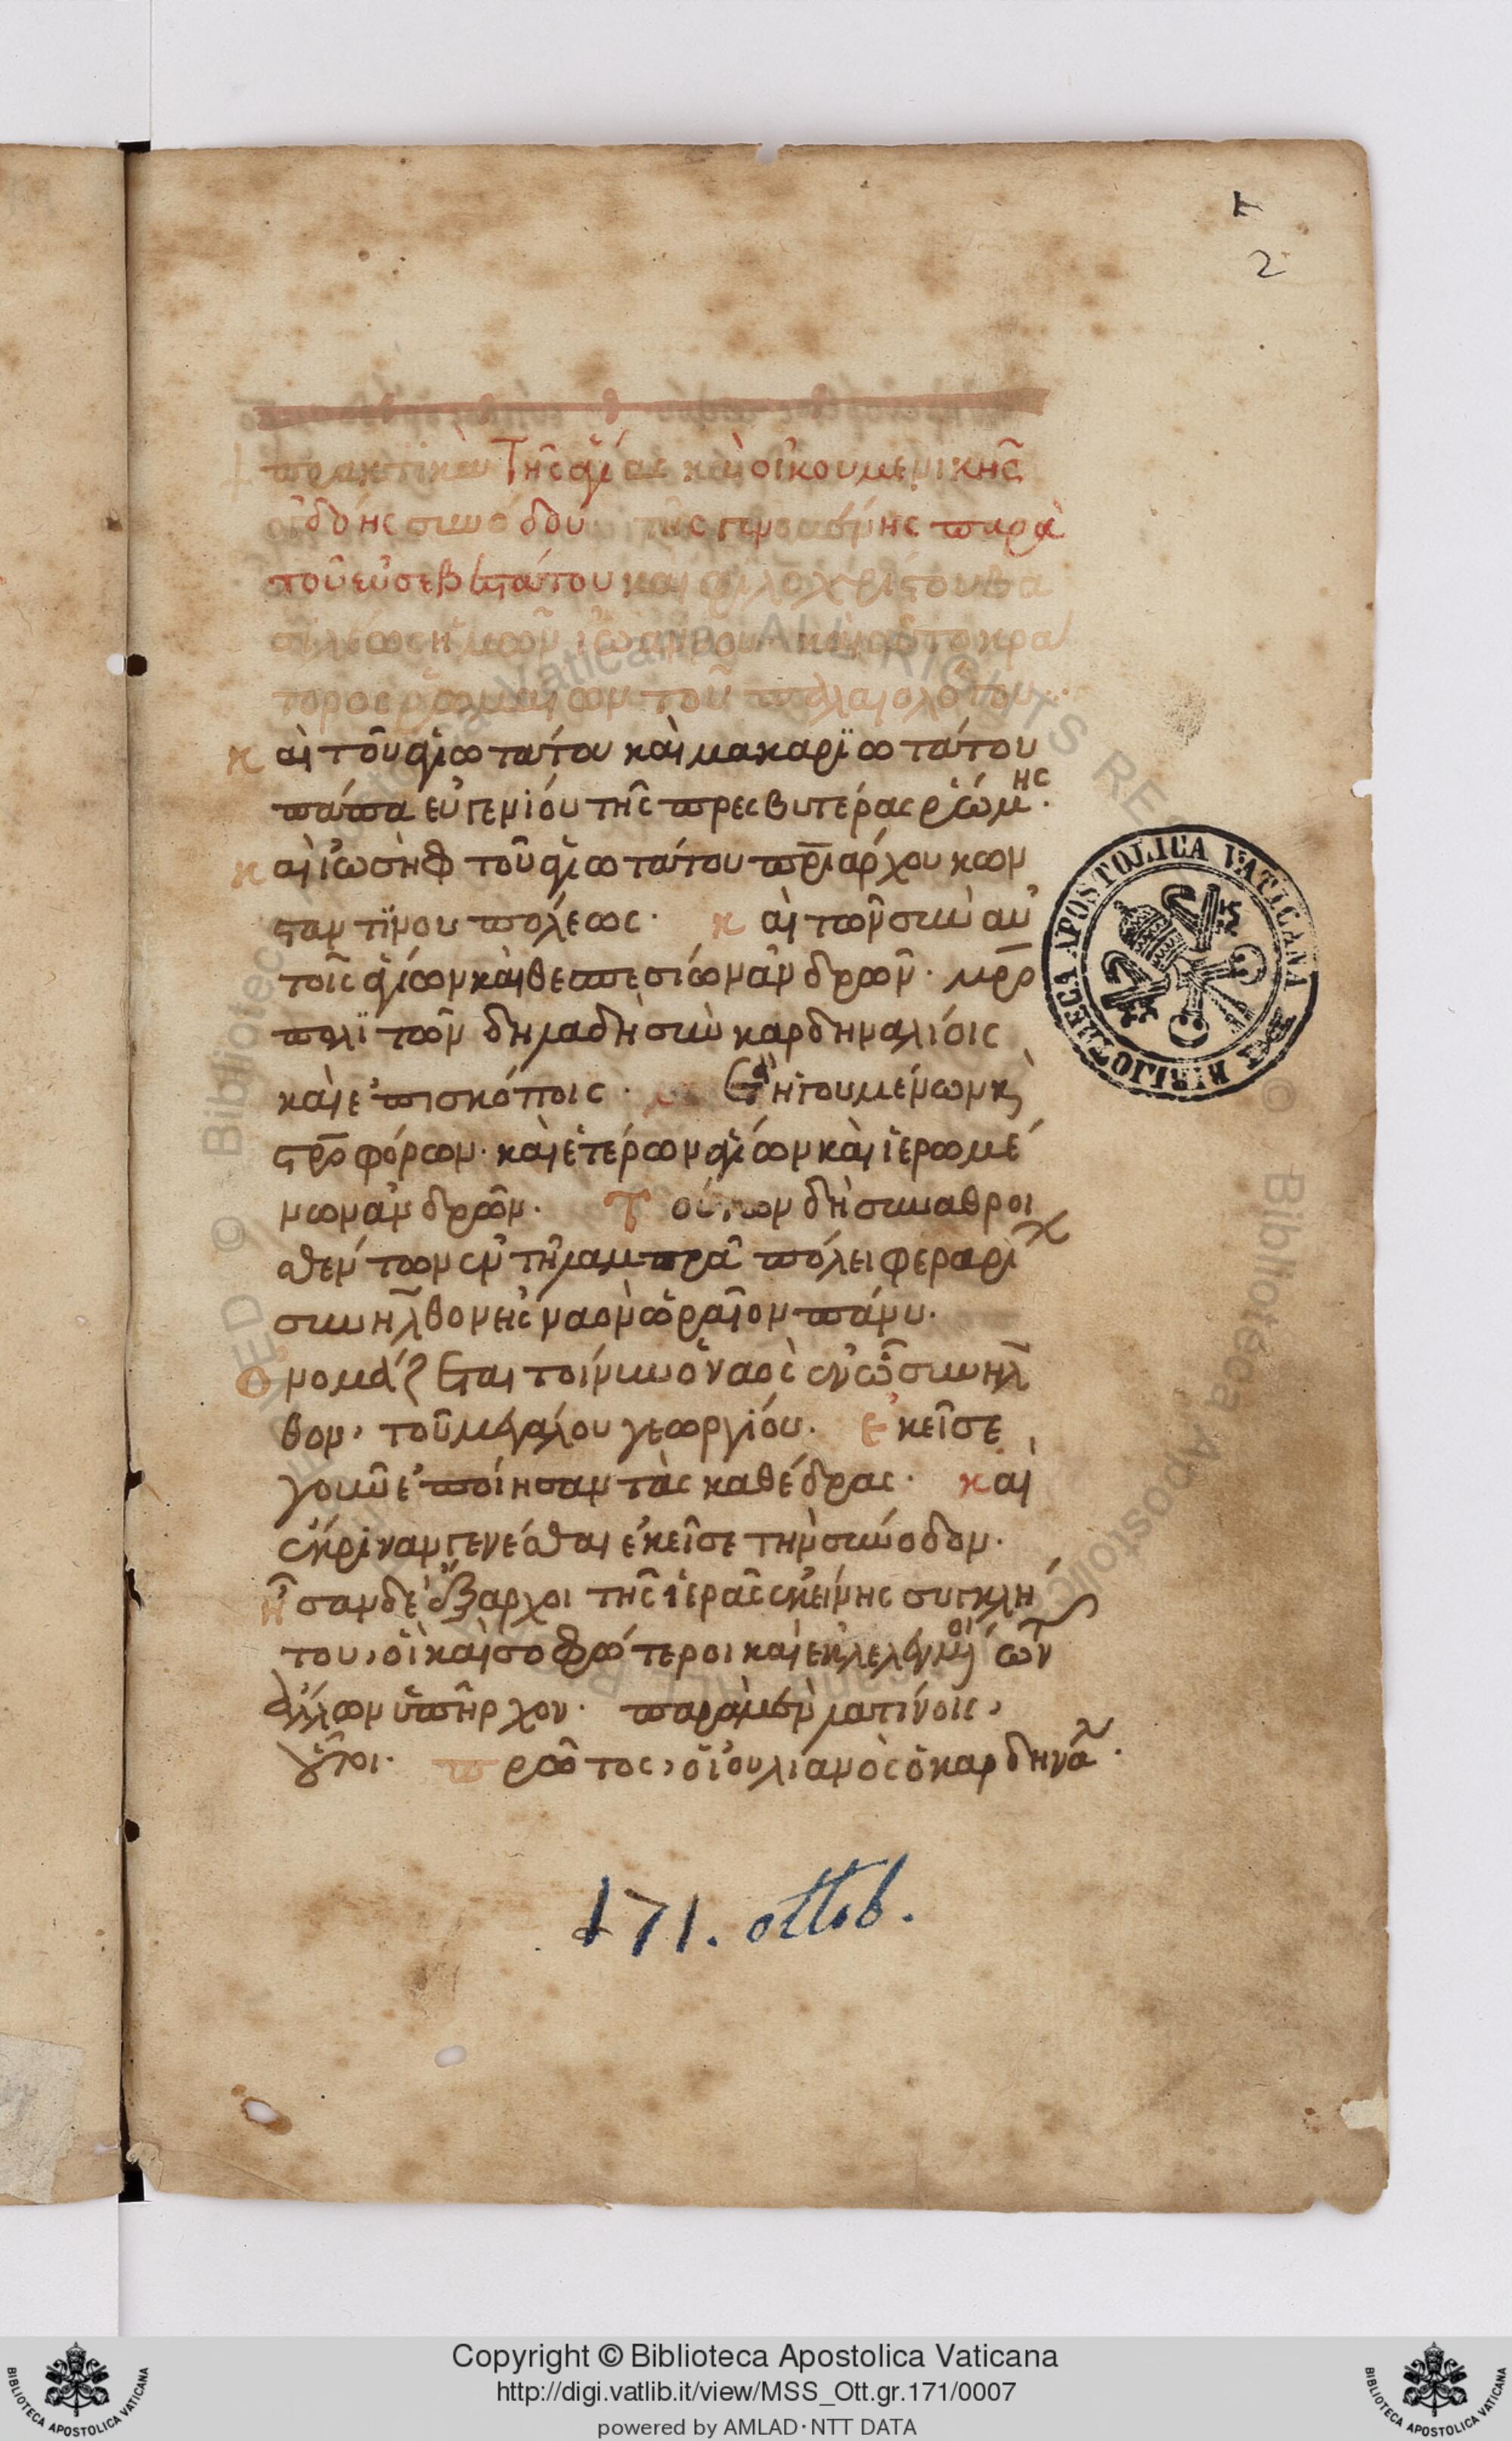 1
2
πρακτικὰ Τῆς ἁγίας καὶ οἰκουμενικῆς
ὀγδόης συνόδου τῆς γενομένης παρὰ
τοῦ εὐσεβεστάτου καὶ φιλοχρίστου βα
σιλέως ἡμῶν ἰωάννου καὶ αὐτοκρά
τορος ῥωμαίων τοῦ παλαιολόγου.
καὶ τοῦ ἁγιωτάτου καὶ μακαριωτάτου
πάπα εὐγενίου τῆς πρεσβυτέρας ῥώμης.
καὶ ἰωσὴφ τοῦ ἁγιωτάτου πριάρχου κων
σταντίνου πόλεως. καὶ τῶν σὺν αὐ
τοῖς ἁγίων καὶ θεσπεσίων ἀνδρῶν. μρο
πολιτῶν δηλαδὴ σὺν καρδηναλίοις
καὶ ἐπισκόποις. ἡγουμένων κ̀
στροφόρων. καὶ ἑτέρων ἁγίων καὶ ἱερωμέ
νων ἀνδρῶν. Τούτων δὴ συναθροι
σθέντων ἐν τῇ λαμπρᾷ πόλει φεραρί
συνῆλθον εἰς ναὸν ὡραῖον πάνυ.
Ὀνομάζεται τοίνυν ὁ ναὸς ἐν ᾧ συνῆλ
θον, τοῦ μεγάλου γεωργίου. ἐκεῖσε
γοῦν ἐποίησαν τὰς καθέδρας. καὶ
ἔκριναν γενέσθαι ἐκεῖσε τὴν σύνοδον.
ἦσαν δὲ ἔξαρχοι τῆς ἱερᾶς ἐκείνης συγκλή
του, οἳ καὶ σοφώτεροι καὶ ἐκλελεγμένοι τῶν
ἄλλων ὑπῆρχον. παρὰ μὲν λατίνοις,
οὗτοι. πρῶτος, ὁ ἰουλιανὸς ὁ καρδηνα.
171. ottob.
BIBLIOTECA APOSTOLICA VATICANA
Copyright © Biblioteca Apostolica Vaticana
http://digi.vatlib.it/view/MSS_Ott.gr.171/0007
powered by AMLAD·NTT DATA
BIBLIOTECA APOSTOLICA VATICANA
BIBLIOTECA APOSTOLICA VATICANA